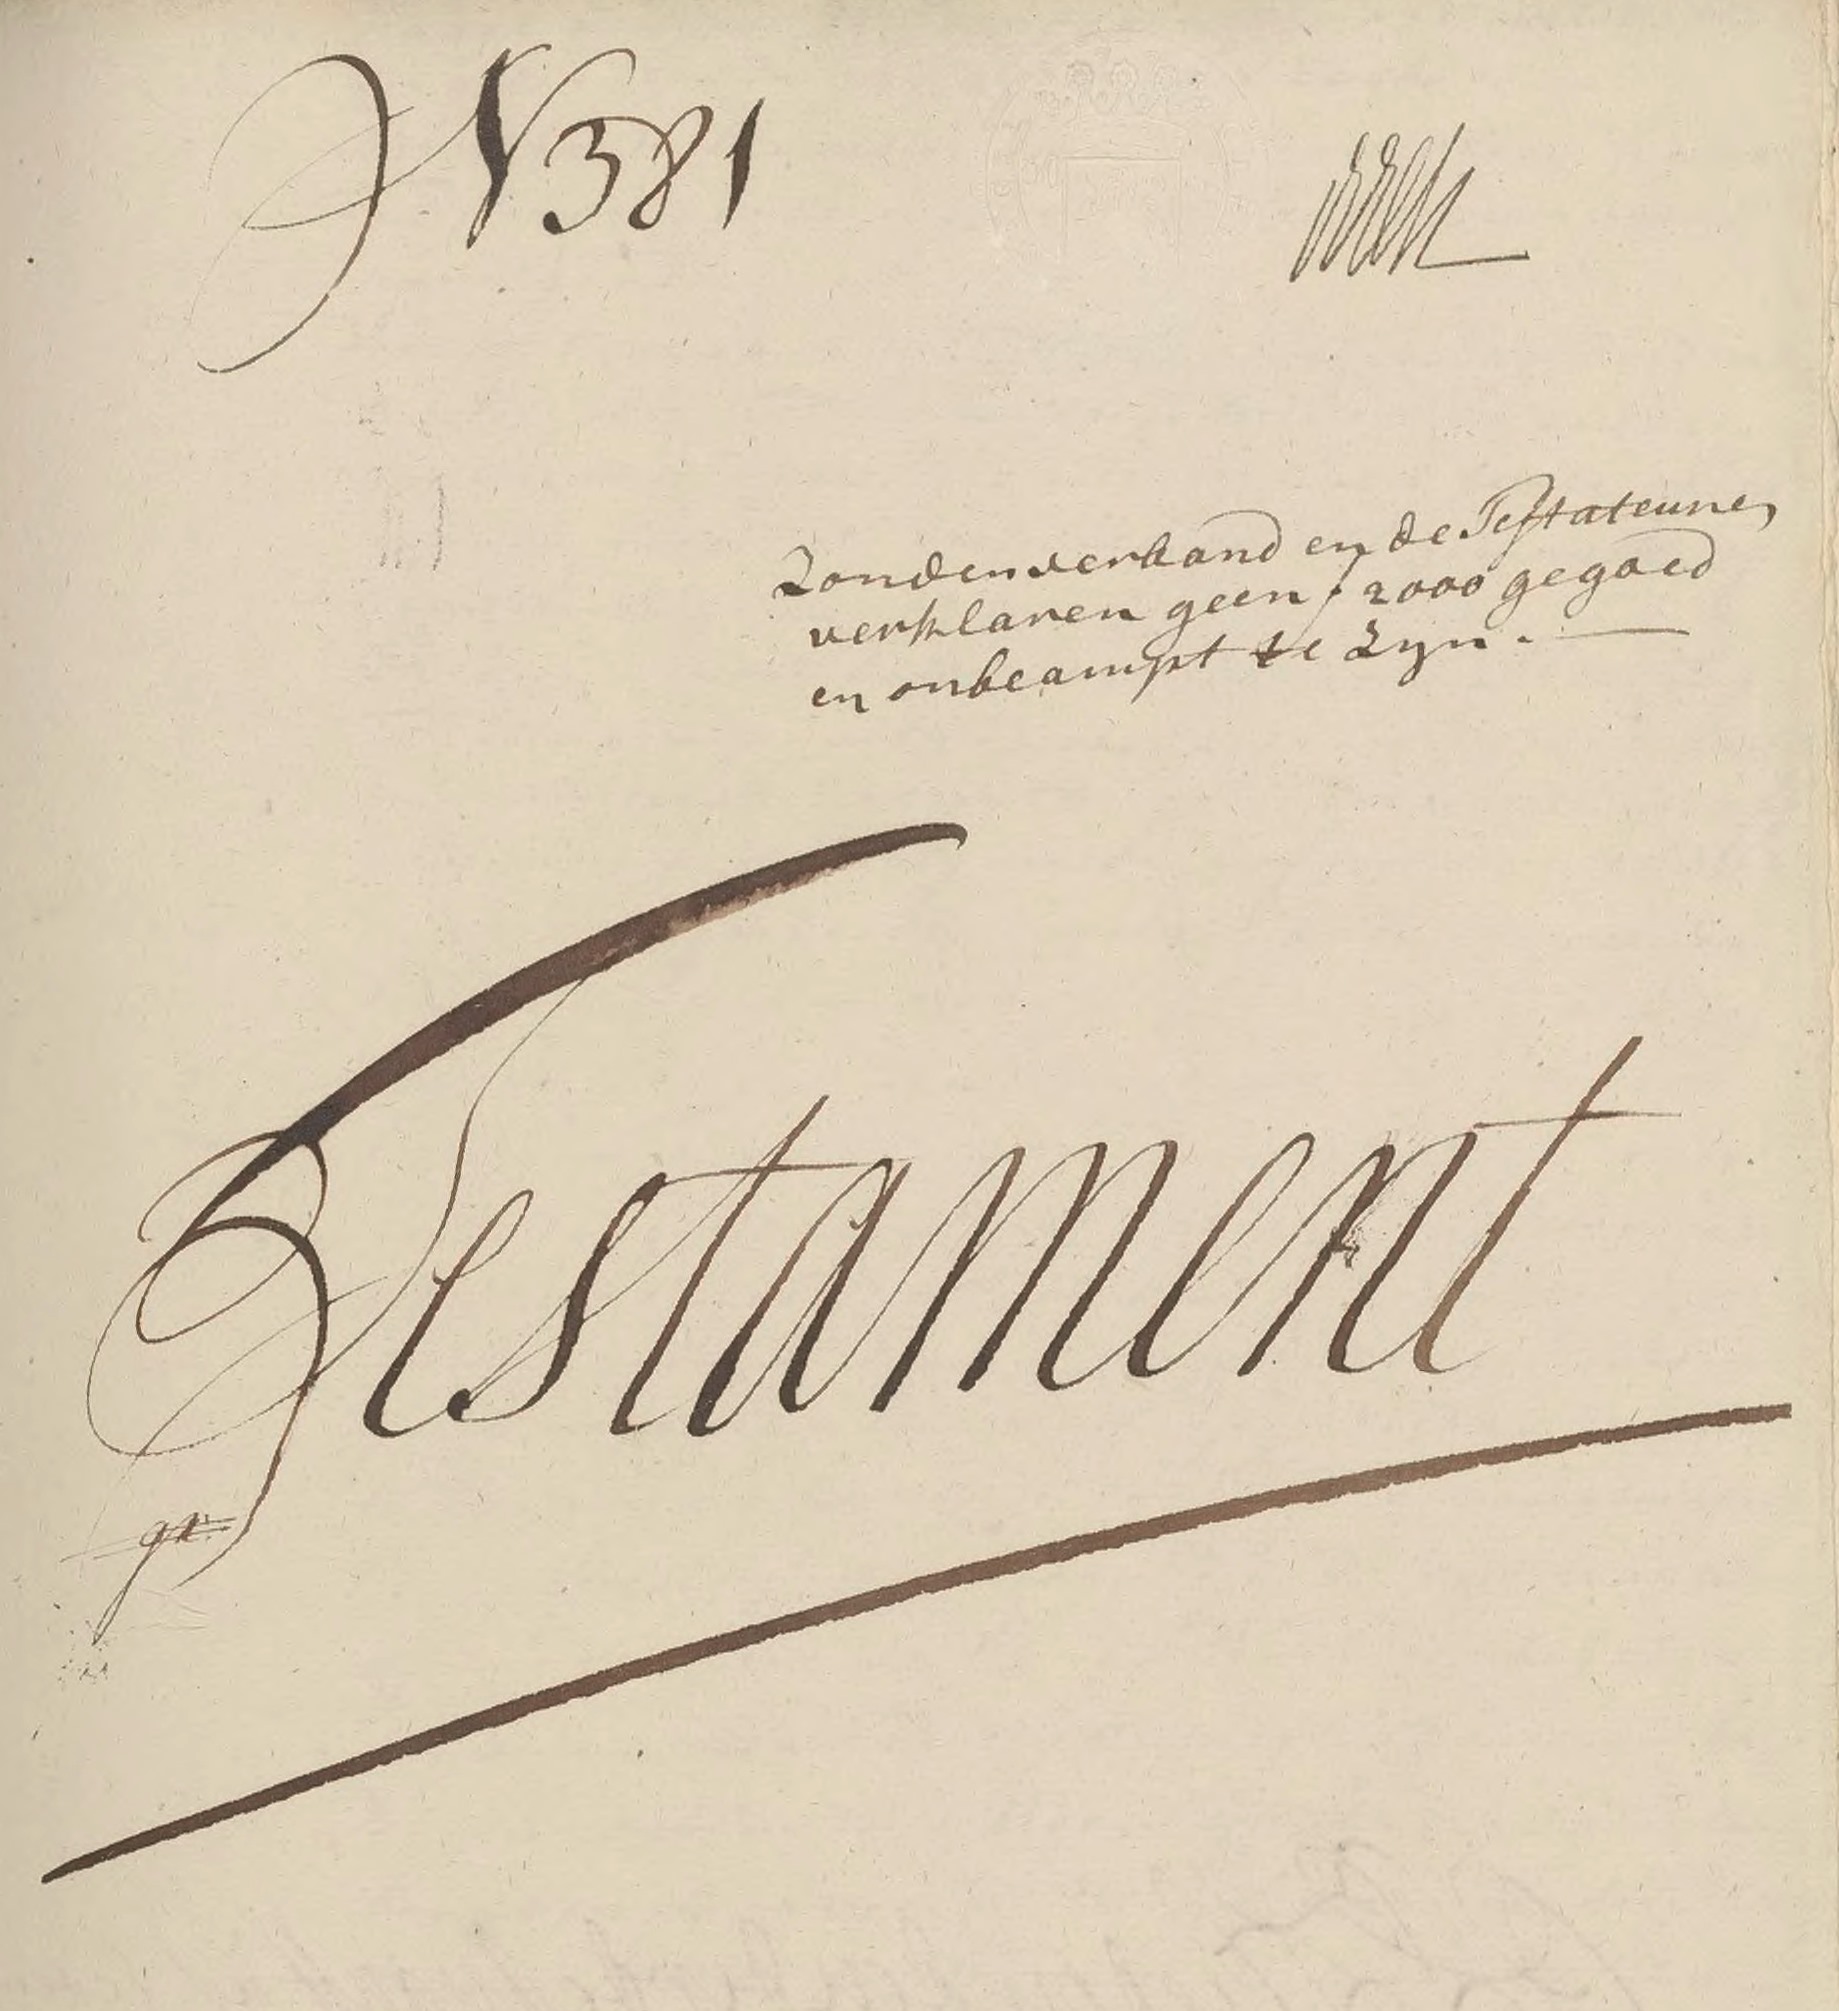 N 381
Zonder verband en de Testateuren
verklaren geen f 2000 gegoed
en onbeampt te Zyn.
Testament